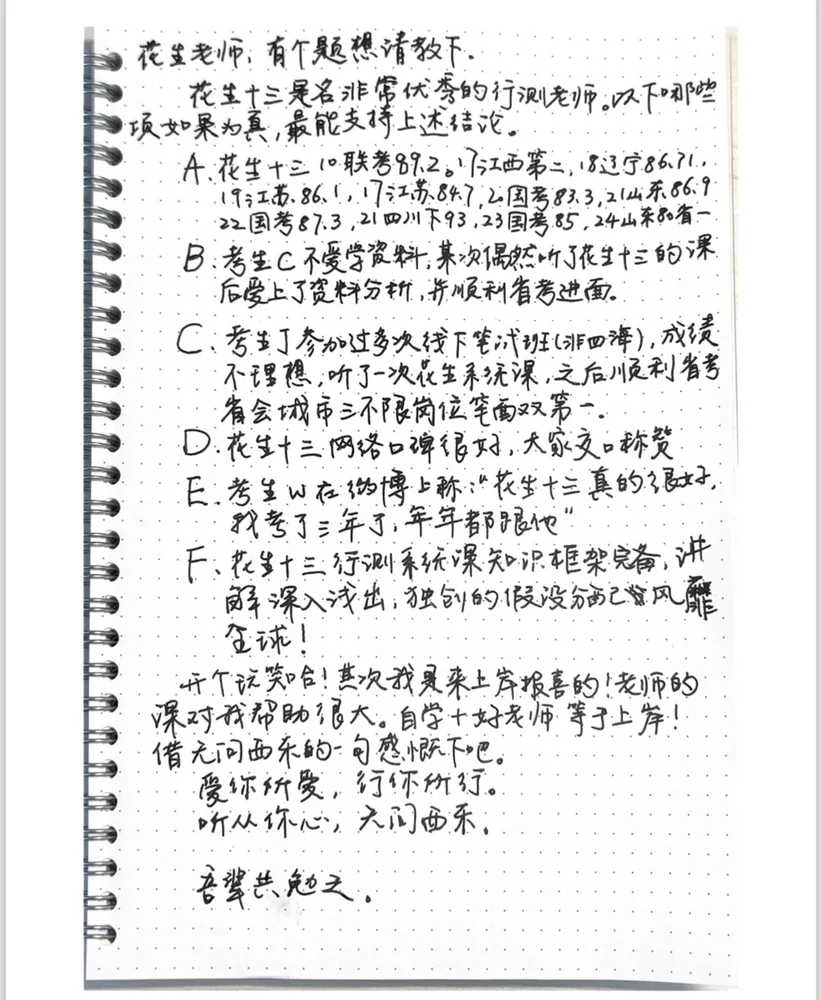 花生老师，有个题想请教下。
花生十三是名非常优秀的行测老师。以下哪些
项如果为真，最能支持上述结论。
A.花生十三10联考89.2。17江西第二，18辽宁86.71，
19江苏.86.1，17江苏84.7，20国考83.3，21山东86.9
22国考87.3，21四川下93，23国考85，24山东80省一
B.考生C不爱学资料，某次偶然听了花生十三的课
后爱上了资料分析，并顺利省考进面。
C.考生丁参加过多次线下笔试班（非四海），成绩
不理想，听了一次花生系统课，之后顺利省考
省会城市三不限岗位笔面双第一。
D.花生十三网络口碑很好，大家交口称赞
E.考生W在微博上称：“花生十三真的很好，
我考了三年了，年年都跟他”
F.花生十三行测系统课知识框架完备，讲
解深入浅出，独创的假设分配已风靡
全球！
开个玩笑哈！其次我是来上岸报喜的！老师的
课对我帮助很大。自学+好老师等于上岸！
借无问西东的一句感慨下吧。
爱你所爱，行你所行。
听从你心，无问西东。
吾辈共勉之。